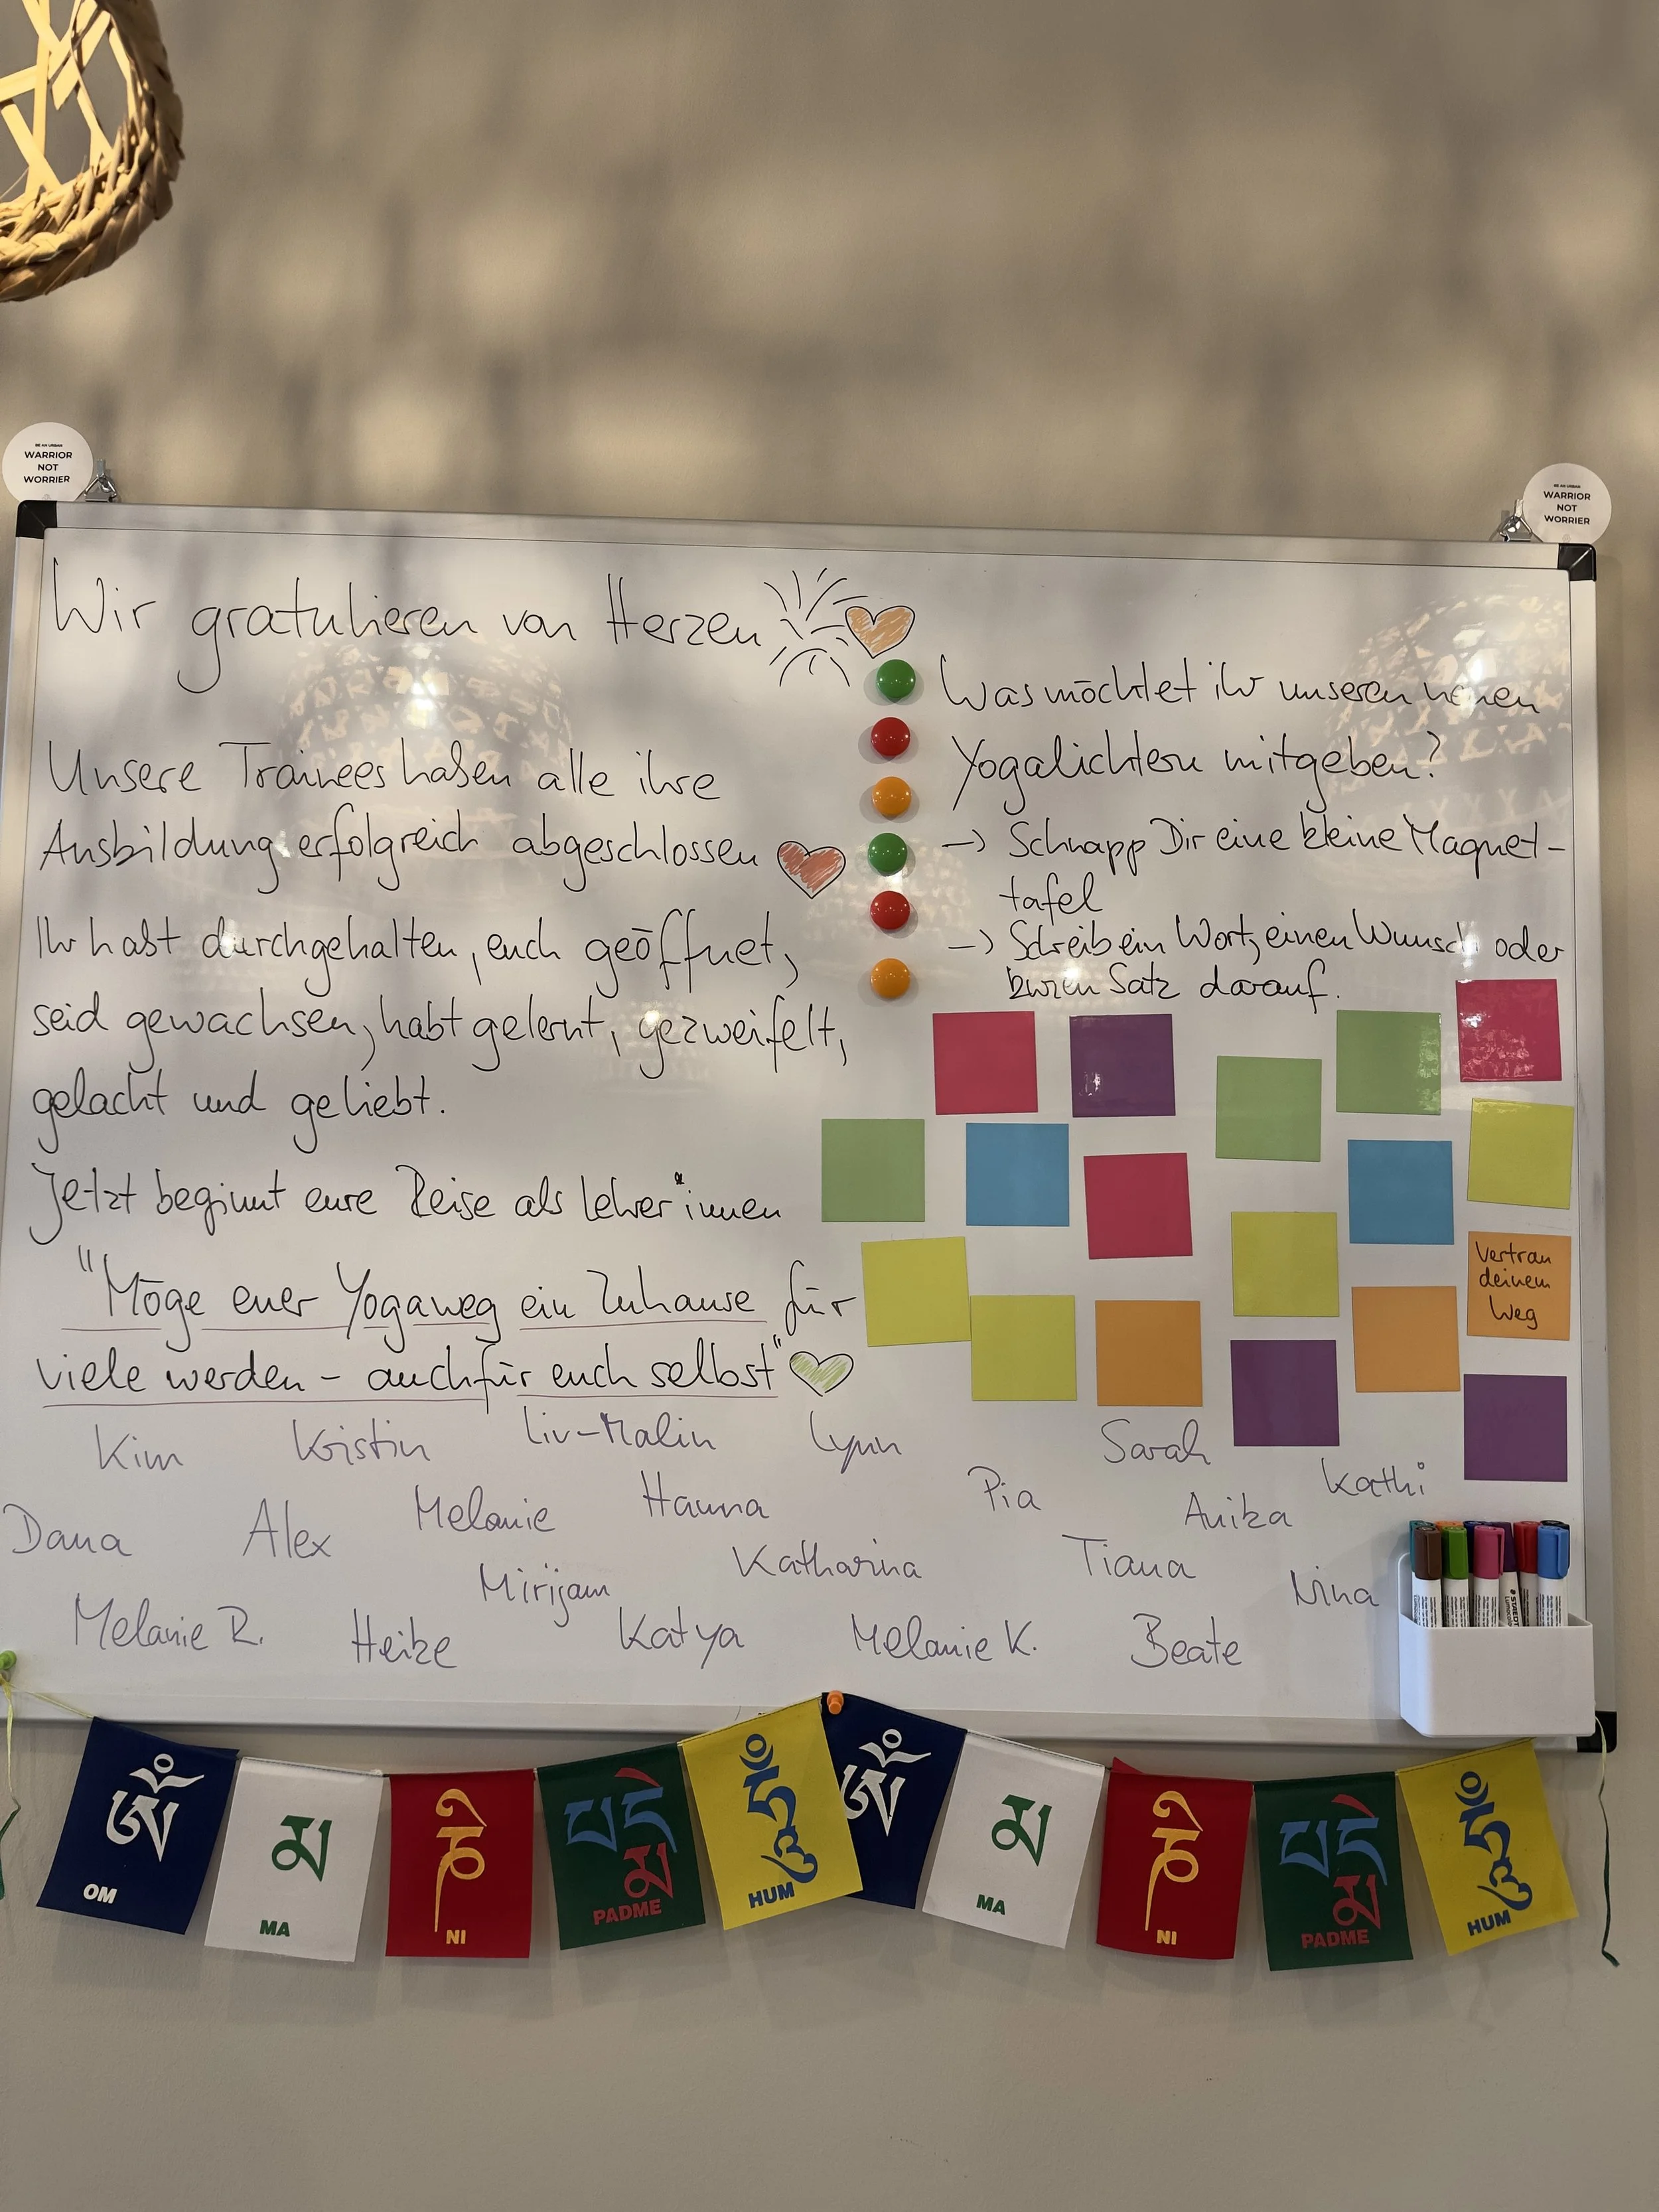 BE AN URBAN
WARRIOR
NOT
WORRIER
BE AN URBAN
WARRIOR
NOT
WORRIER
Wir gratulieren von Herzen
Unsere Trainees haben alle ihre
Ausbildung erfolgreich abgeschlossen
Ihr habt durchgehalten, euch geöffnet,
seid gewachsen, habt gelernt, gezweifelt,
gelacht und geliebt.
Jetzt beginnt eure Reise als Lehrer*innen
"Möge euer Yogaweg ein Zuhause für
viele werden - auch für euch selbst"
Was möchtet ihr unseren neuen
Yogalichtern mitgeben?
-> Schnapp Dir eine kleine Magnet-
tafel
-> Schreib ein Wort, einen Wunsch oder
kurzen Satz darauf.
Vertrau
deinem
Weg
Kim Kristin Liv-Malin Lynn Sarah
Dana Alex Melanie Hanna Pia Anika Kathi
Mirijam Katharina Tiana Nina
Melanie R. Heike Katya Melanie K. Beate
ཨོཾ མ ཎི པདྨེ ཧཱུྃ ཨོཾ མ ཎི པདྨེ ཧཱུྃ
OM MA NI PADME HUM MA NI PADME HUM